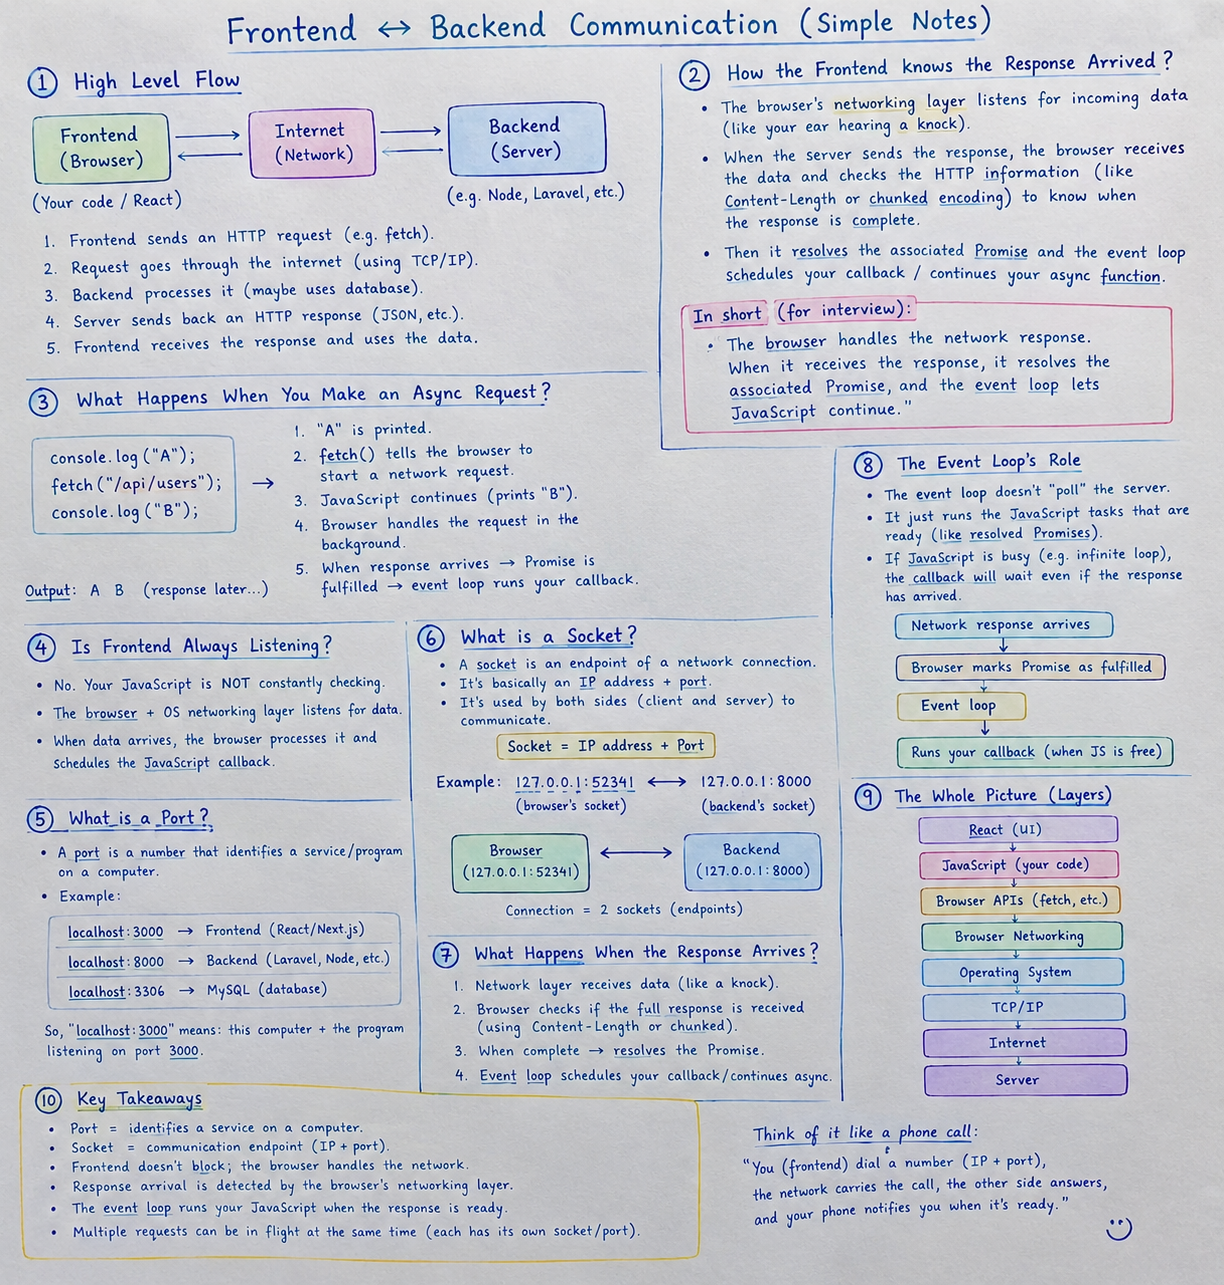 Frontend ↔ Backend Communication (Simple Notes)
① High Level Flow
Frontend
(Browser)
Internet
(Network)
Backend
(Server)
(Your code / React)
(e.g. Node, Laravel, etc.)
1. Frontend sends an HTTP request (e.g. fetch).
2. Request goes through the internet (using TCP/IP).
3. Backend processes it (maybe uses database).
4. Server sends back an HTTP response (JSON, etc.).
5. Frontend receives the response and uses the data.
② How the Frontend knows the Response Arrived?
• The browser's networking layer listens for incoming data
(like your ear hearing a knock).
• When the server sends the response, the browser receives
the data and checks the HTTP information (like
Content-Length or chunked encoding) to know when
the response is complete.
• Then it resolves the associated Promise and the event loop
schedules your callback / continues your async function.
In short (for interview):
• The browser handles the network response.
When it receives the response, it resolves the
associated Promise, and the event loop lets
JavaScript continue."
③ What Happens When You Make an Async Request?
console.log("A");
fetch("/api/users");
console.log("B");
→
1. "A" is printed.
2. fetch() tells the browser to
start a network request.
3. JavaScript continues (prints "B").
4. Browser handles the request in the
background.
5. When response arrives → Promise is
fulfilled → event loop runs your callback.
Output: A B (response later...)
④ Is Frontend Always Listening?
• No. Your JavaScript is NOT constantly checking.
• The browser + OS networking layer listens for data.
• When data arrives, the browser processes it and
schedules the JavaScript callback.
⑤ What is a Port?
• A port is a number that identifies a service/program
on a computer.
• Example:
localhost:3000 → Frontend (React/Next.js)
localhost:8000 → Backend (Laravel, Node, etc.)
localhost:3306 → MySQL (database)
So, "localhost:3000" means: this computer + the program
listening on port 3000.
⑥ What is a Socket?
• A socket is an endpoint of a network connection.
• It's basically an IP address + port.
• It's used by both sides (client and server) to
communicate.
Socket = IP address + Port
Example: 127.0.0.1:52341 ↔ 127.0.0.1:8000
(browser's socket) (backend's socket)
Browser
(127.0.0.1:52341)
Backend
(127.0.0.1:8000)
Connection = 2 sockets (endpoints)
⑦ What Happens When the Response Arrives?
1. Network layer receives data (like a knock).
2. Browser checks if the full response is received
(using Content-Length or chunked).
3. When complete → resolves the Promise.
4. Event loop schedules your callback/continues async.
⑧ The Event Loop's Role
• The event loop doesn't "poll" the server.
• It just runs the JavaScript tasks that are
ready (like resolved Promises).
• If JavaScript is busy (e.g. infinite loop),
the callback will wait even if the response
has arrived.
Network response arrives
Browser marks Promise as fulfilled
Event loop
Runs your callback (when JS is free)
⑨ The Whole Picture (Layers)
React (UI)
JavaScript (your code)
Browser APIs (fetch, etc.)
Browser Networking
Operating System
TCP/IP
Internet
Server
⑩ Key Takeaways
• Port = identifies a service on a computer.
• Socket = communication endpoint (IP + port).
• Frontend doesn't block; the browser handles the network.
• Response arrival is detected by the browser's networking layer.
• The event loop runs your JavaScript when the response is ready.
• Multiple requests can be in flight at the same time (each has its own socket/port).
Think of it like a phone call:
"You (frontend) dial a number (IP + port),
the network carries the call, the other side answers,
and your phone notifies you when it's ready."